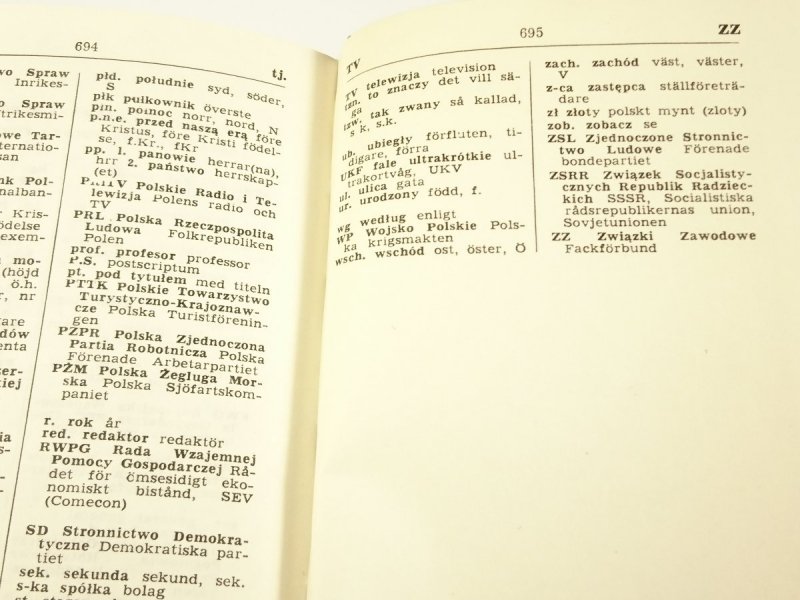 694
tj.
wo Spraw
Inrikes-
wo Spraw
trikesmi-
owe Tar-
ternatio-
san
nk Pol-
nalban-
r Kris-
ödelse
exem-
mo-
(höjd
ö.h.
r, nr
are
dów
enta
zer-
kiej
nia
s-
płd. południe syd, söder,
S
płk pułkownik överste
płn. północ norr, nord, N
p.n.e. przed naszą erą före
Kristus, före Kristi födel-
se, f.Kr., fKr
pp. 1. panowie herrar(na),
hrr 2. państwo herrskap-
(et)
PRiTV Polskie Radio i Te-
lewizja Polens radio och
TV
PRL Polska Rzeczpospolita
Ludowa Folkrepubliken
Polen
prof. profesor professor
P.S. postscriptum
pt. pod tytułem med titeln
PTTK Polskie Towarzystwo
Turystyczno-Krajoznaw-
cze Polska Turistförenin-
gen
PZPR Polska Zjednoczona
Partia Robotnicza Polska
Förenade Arbetarpartiet
PŻM Polska Żegluga Mor-
ska Polska Sjöfartskom-
paniet
r. rok år
red. redaktor redaktör
RWPG Rada Wzajemnej
Pomocy Gospodarczej Rå-
det för ömsesidigt eko-
nomiskt bistånd, SEV
(Comecon)
SD Stronnictwo Demokra-
tyczne Demokratiska par-
tiet
sek. sekunda sekund, sek.
s-ka spółka bolag
TV
695
ZZ
TV telewizja television
tzn. to znaczy det vill sä-
ga
tzw. tak zwany så kallad,
s k, s.k.
ub. ubiegły förfluten, ti-
digare, förra
UKF fale ultrakrótkie ul-
trakortvåg, UKV
ul. ulica gata
ur. urodzony född, f.
wg według enligt
WP Wojsko Polskie Pols-
ka krigsmakten
wsch. wschód ost, öster, Ö
zach. zachód väst, väster,
V
z-ca zastępca ställföreträ-
dare
zł złoty polskt mynt (zloty)
zob. zobacz se
ZSL Zjednoczone Stronnic-
two Ludowe Förenade
bondepartiet
ZSRR Związek Socjalisty-
cznych Republik Radziec-
kich SSSR, Socialistiska
rådsrepublikernas union,
Sovjetunionen
ZZ Związki Zawodowe
Fackförbund